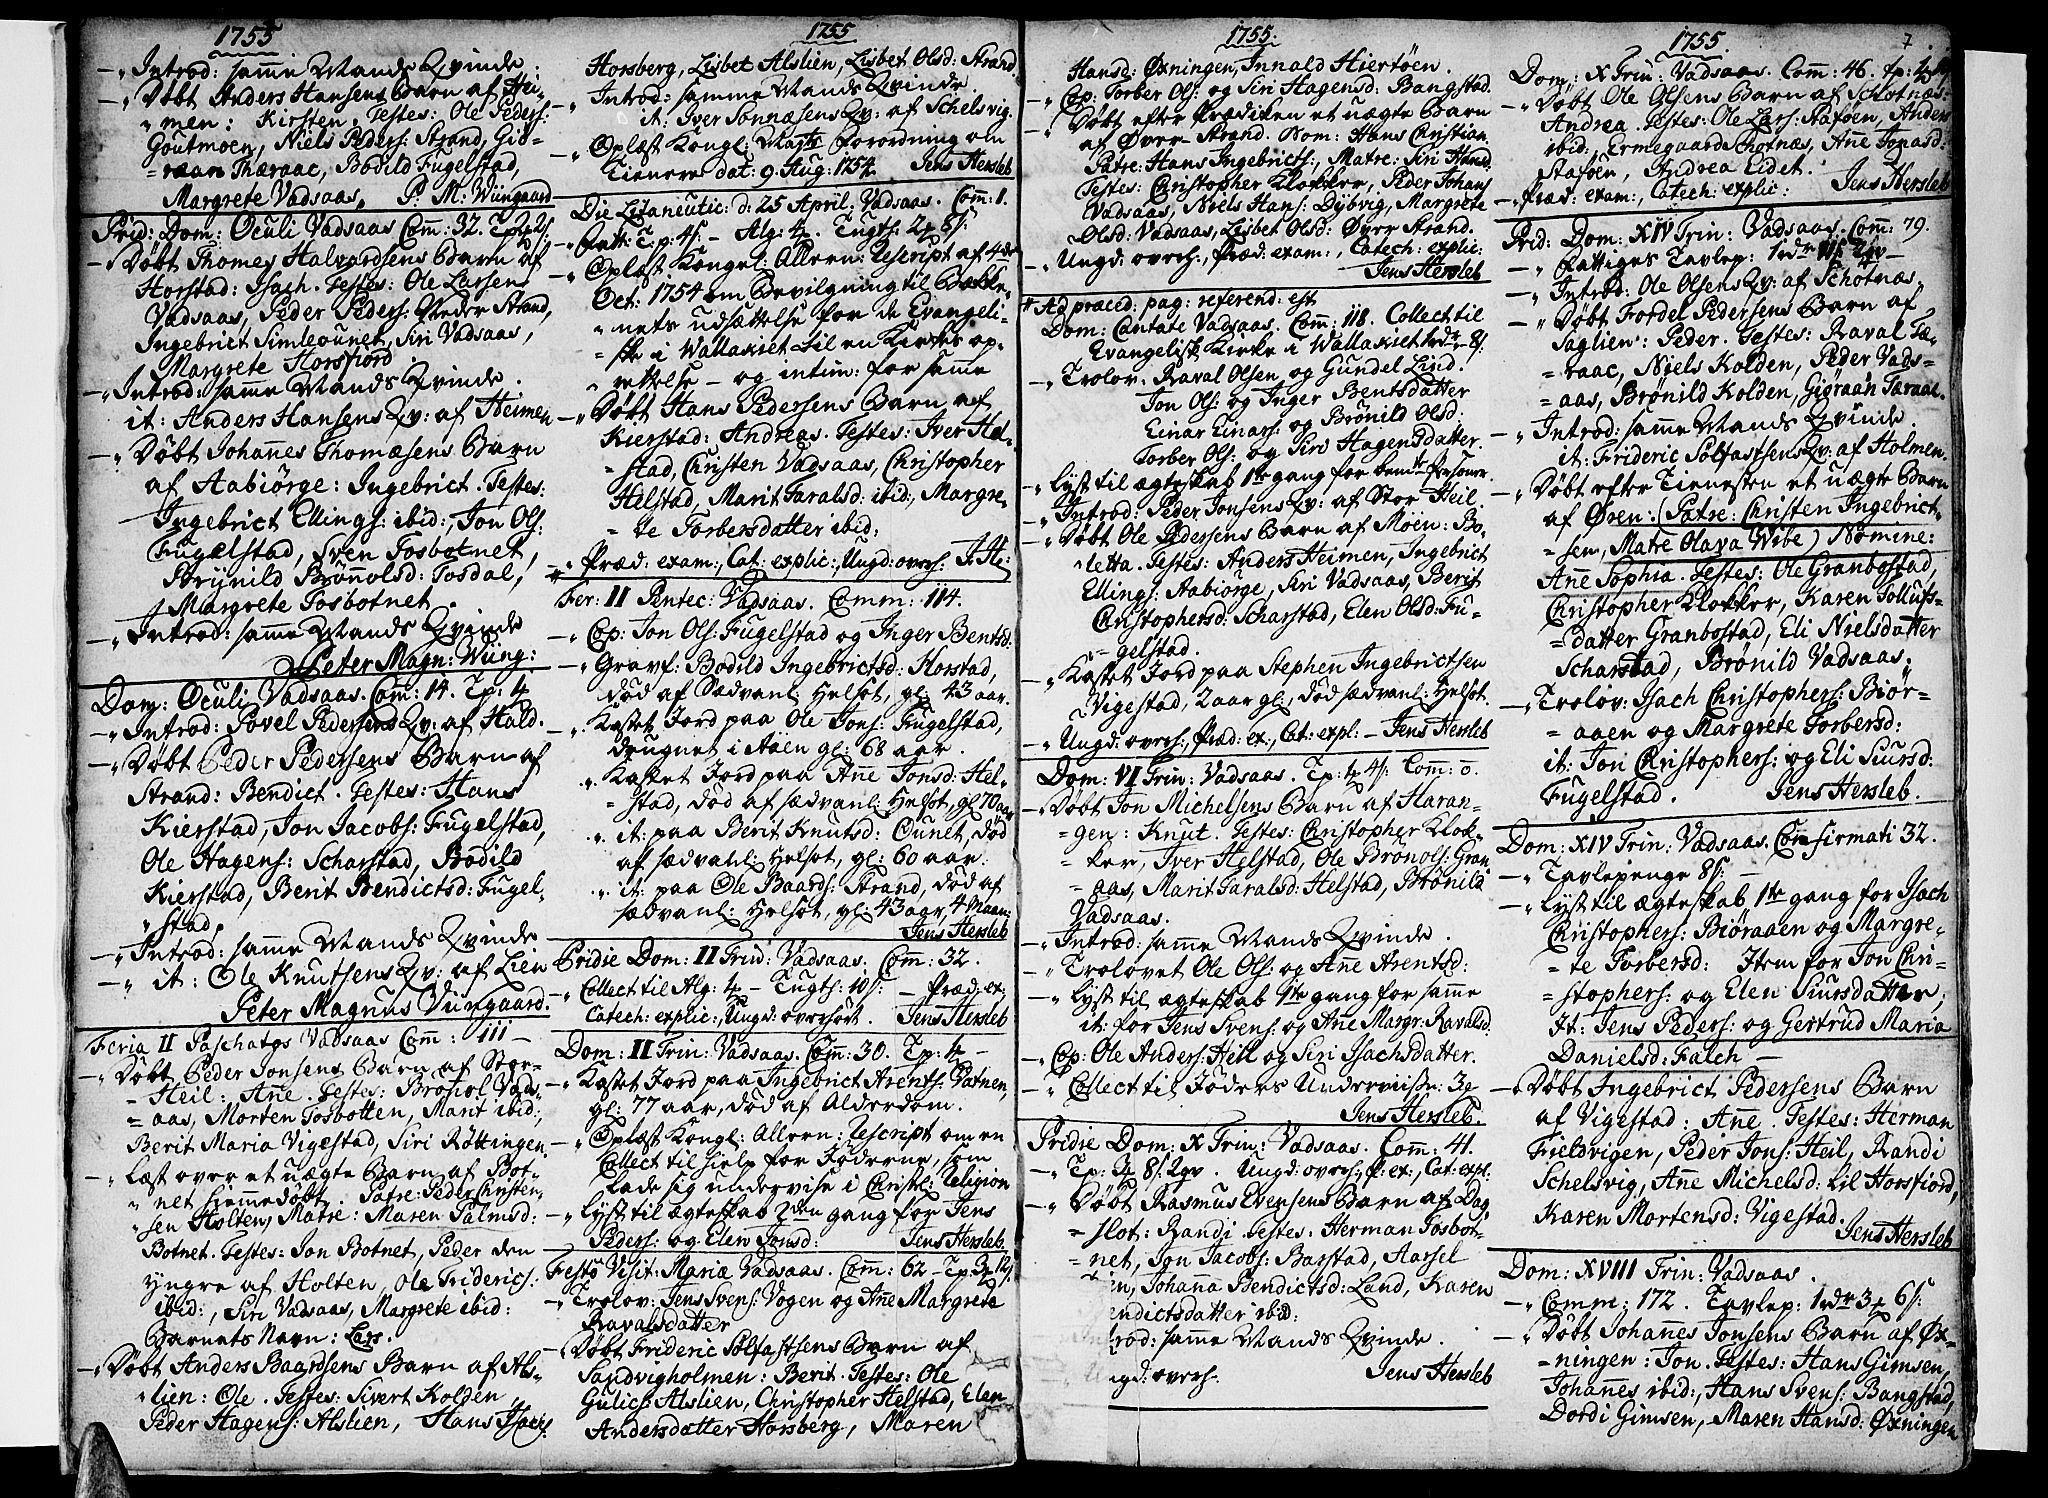 1755
Introd: samme Mands Qvinde.
Døbt Anders Hansens Barn af Hei-
men: Kirsten. Testes: Ole Peders:
Goutmoen, Niels Peders: Strand, Giø-
raan Thæraac, Bodild Fugelstad,
Margrete Vadsaas, P. M. Wiingaard
Prid: Dom: Oculi Vadsaas Com: 32.
Døbt Thomes Halvardsens Barn af
Horstad: Isach. Testes: Ole Larsens
Vadsaas, Peder Peders: Strand,
Ingebrict Simleounet, Siri Vadsaas,
Margrete Horsfiord
Introd: samme Mands Qvinde.
it: Anders Hansens Qv: af Heimen
Døbt Johannes Thomæsens Barn
af Aabiørge: Ingebrict. Testes:
Ingebrict Ellings: ibid:, Jon Ols:
Fugelstad, Sven Tosbotnet,
Brynild Brønnolsd: Tosdal,
Margrete Tosbotnet.
Introd: samme Mands Qvinde
Peter Magn: Wiing:
Dom: Oculi Vadsaas. Com: 14. Tp: 4
Introd: Povel Pedersens Qv: af Hald.
Døbt Peder Pedersens Barn af
Strand: Bendict. Testes: Hans
Kierstad, Jon Jacobs: Fugelstad,
Ole Hagens: Scharstad, Bodild
Kierstad, Berit Bendictsd: Fugel-
stad.
Introd: samme Mands Qvinde
it: Ole Knutsens Qv: af Lien
Peter Magnus Viingaard.
Feria II Paschatos Vadsaas Comm: 111
Døbt Peder Jonsens Barn af Stor-
Heil: Anne. Testes: Brønol Vads-
aas, Morten Tosbotten, Marit ibid:,
Berit Maria Vigestad, Siri Røttingen
Læst over et uægte Barn af Bot-
net hiemmedøbt. Patre: Peder Christen-
sen Holten, Matre: Maren Palmsd:
Botnet. Testes: Jon Botnet, Peder den
yngre af Holten, Ole Friderics:
ibid:, Siri Vadsaas, Margrete ibid:
Barnets Navn: Lars.
Døbt Anders Baardsens Barn af Als-
lien: Ole. Testes: Sivert Kolden
Peder Hagens: Alslien, Hans Isachs:
1755
Horsberg, Lisbet Alslien, Lisbet Olsd: Strand
Introd: samme Mands Qvinde.
it: Iver Tonnæsens Qv: af Schelsvig.
Oplæst Kongl: Mayts forordning om
Tienere dat: 9 Aug: 1754. Jens Hersleb
Die Litaneutic: d: 25 April. Vadsaas. Comm: 1.
Tp: 4 Alg: 4 Tugth: 8
Oplæst Kongel: Allern: Rescript af 4de
Oct: 1754 om Bevilgning til
nets udsættelse for de Evangeli-
ske i Wallakiet til en Kirkes op-
rettelse og intim: for samme
Døbt Hans Pedersens Barn af
Kierstad: Andreas. Testes: Iver Hel-
stad, Christen Vadsaas, Christopher
Helstad, Marit Taralsd: ibid:, Margre-
te Torbersdatter ibid:
Præd: exam:, Cat: explic:, Ungd: overh: J: H:
Fer: II Pentec: Vadsaas. Comm: 114.
Cop: Jon Ols: Fugelstad og Inger Bentsd:
Gravf: Bodild Ingebrictsd: Horstad,
død af Sædvanl: Helsot, gl: 43 aar.
Kastet Jord paa Ole Jons: Fugelstad,
drugnet i Aaen gl: 68 aar.
Kastet Jord paa Anne Jonsd: Hel-
stad, død af sædvanl: Helsot, gl 70 aar
it: paa Berit Knutsd: Ounet, død
af sædvanl: Helsot, gl: 60 aar.
it: paa Ole Baards: Strand, død af
sædvanl: Helsot, gl: 43 aar, 4 Maan:
Jens Hersleb
Pridie Dom: II Trin: Vadsaas. Comm: 32.
Collect til Alg: 4 Tugth: 10 Præd: ex:
Catech: explic:, Ungd: overhørt. Jens Hersleb
Dom: II Trin: Vadsaas. Comm: 30. Tp: 4
Kastet Jord paa Ingebrict Arents: Vatnen,
gl: 77 aar, død af Alderdom.
Oplæst Kongl: Allern: Rescript om en
Collect til hielp for Jøderne, som
lade sig undervise i Christel: Religion
Lyst til ægteskab 2den gang for Jens
Peders: og Elen Jonsd: Jens Hersleb
Festo Visit: Mariæ Vadsaas. Comm: 62
Trolov: Jens Svens: Vogen og Anne Margrete
Ravalsdatter
Døbt Frideric Solfastsens Barn af
Sandvigholmen: Berit. Testes: Ole
Gulics: Alslien, Christopher Helstad, Elen
Andersdatter Horsberg, Maren
1755.
Hansd: Øxningen, Innald Hiertøen.
Cop: Torber Ols: og Siri Hagensd: Bangstad.
Døbt efter Prædiken et uægte Barn
af Øver-Strand. Nom: Hans Christian.
Patre: Hans Ingebricts:, Matre: Siri Hansd:
Testes: Christopher Klokker, Peder Johans
Vadsaas, Niels Hans: Dybvig, Margrete
Olsd: Vadsaas, Lisbet Olsd: Øver Strand.
Ungd: overh:, Præd: exam:, Catech: explic:
Jens Hersleb
# Ad præced: pag: referend: est
Dom: Cantate Vadsaas. Comm: 118. Collect til
Evangelisk Kirke i Wallakiet
Trolov: Raval Olsen og Gundel Lind.
Jon Ols: og Inger Bentsdatter
Einar Einars: og Brønild Olsd:
Torber Ols: og Siri Hagensdatter.
Lyst til ægteskab 1te gang for bemte Personer.
Introd: Peder Jonsens Qv: af Stor Heil
Døbt Ole Pedersens Barn af Møen: Bo-
letta. Testes: Anders Heimen, Ingebrict
Ellings: Aabiørge, Siri Vadsaas, Berit
Christophersd: Scharstad, Elen Olsd: Fu-
gelstad.
Kastet Jord paa Stephen Ingebrictsen
Vigestad, 2 aar gl:, død sædvanl: Helsot.
Ungd: overh:, Præd: ex:, Cat: expl: Jens Hersleb
Dom: VI Trin: Vadsaas. Tp: 4 Comm: 0.
Døbt Jon Michelsens Barn af Haran-
gen: Knut. Testes: Christopher Klok-
ker, Iver Helstad, Ole Brønols: Gran-
aas, Marit Taralsd: Helstad, Brønild
Vadsaas.
Introd: samme Mands Qvinde.
Trolovet Ole Ols: og Anne Arentsd:
Lyst til ægteskab 1te gang for samme
it: for Jens Svens: og Ane Margr: Ravalsd:
Cop: Ole Anders: Heil og Siri Isachsdatter.
Collect til Jøders Underviisn:
Jens Hersleb.
Pridie Dom: X Trin: Vadsaas. Comm: 41.
Ungd: overh:, P: ex:, Cat: expl:
Døbt Rasmus Evensens Barn af Dag-
slot: Randi. Testes: Herman Tosbot-
net, Jon Jacobs: Barstad, Aarsel
Johanna Bendictsd: Land, Karen
endictsdatter ibid:
rod: samme Mands Qvinde.
gd: overh: Jens Hersleb
1755.
7
Dom: X Trin: Vadsaas. Comm: 46.
Døbt Ole Olsens Barn af Schotnæs:
Andrea. Testes: Ole Lars: Staføen, Anders
ibid:, Ermegaard Schotnæs, Anne Jonasd:
Staføen, Andrea Eidet.
Præd: exam:, Catech: explic: Jens Hersleb
Prid: Dom: XIV Trin: Vadsaas. Comm: 79.
Fattiges Tavlep:
Introd: Ole Olsens Qv: af Schotnæs
Døbt Fordel Pedersens Barn af
Saglien: Peder. Testes: Raval Tæ-
raac, Niels Kolden, Peder Vads-
aas, Brønild Kolden, Giøraan Taraac.
Introd: samme Mands Qvinde.
it: Frideric Solfastsens Qv: af Holmen.
Døbt efter Tienesten et uægte Barn
af Øren: (Patre: Christen Ingebrict-
sen, Matre Olava Wibe) Nomine:
Anne Sophia. Testes: Ole Granbostad,
Christopher Klokker, Karen Tollufs-
datter Granbostad, Eli Nielsdatter
Scharstad, Brønild Vadsaas.
Trolov: Isach Christophers: Biør-
aaen og Margrete Torbersd:
it: Jon Christophers: og Eli Siursd:
Fugelstad. Jens Hersleb.
Dom: XIV Trin: Vadsaas. Confirmati 32.
Tavlepenge
Lyst til ægteskab 1te gang for Isach
Christophers: Biøraaen og Margre-
te Torbersd: Item for Jon Chri-
stophers: og Elen Siursdatter,
It: Jens Peders: og Gertrud Maria
Danielsd: Falch
Døbt Ingebrict Pedersens Barn
af Vigestad: Anne. Testes: Herman
Fieldvigen, Peder Jons: Heil, Randi
Schelsvig, Anne Michelsd: lil Horsfiord,
Karen Mortensd: Vigestad.
Jens Hersleb
Dom: XVIII Trin: Vadsaas.
Comm: 172. Tavlep:
Døbt Johannes Jonsens Barn af Øx-
ningen: Jon. Testes: Hans Gimsen,
Johannes ibid:, Hans Svens: Bangstad,
Dordi Gimsen, Maren Hansd: Øxningen